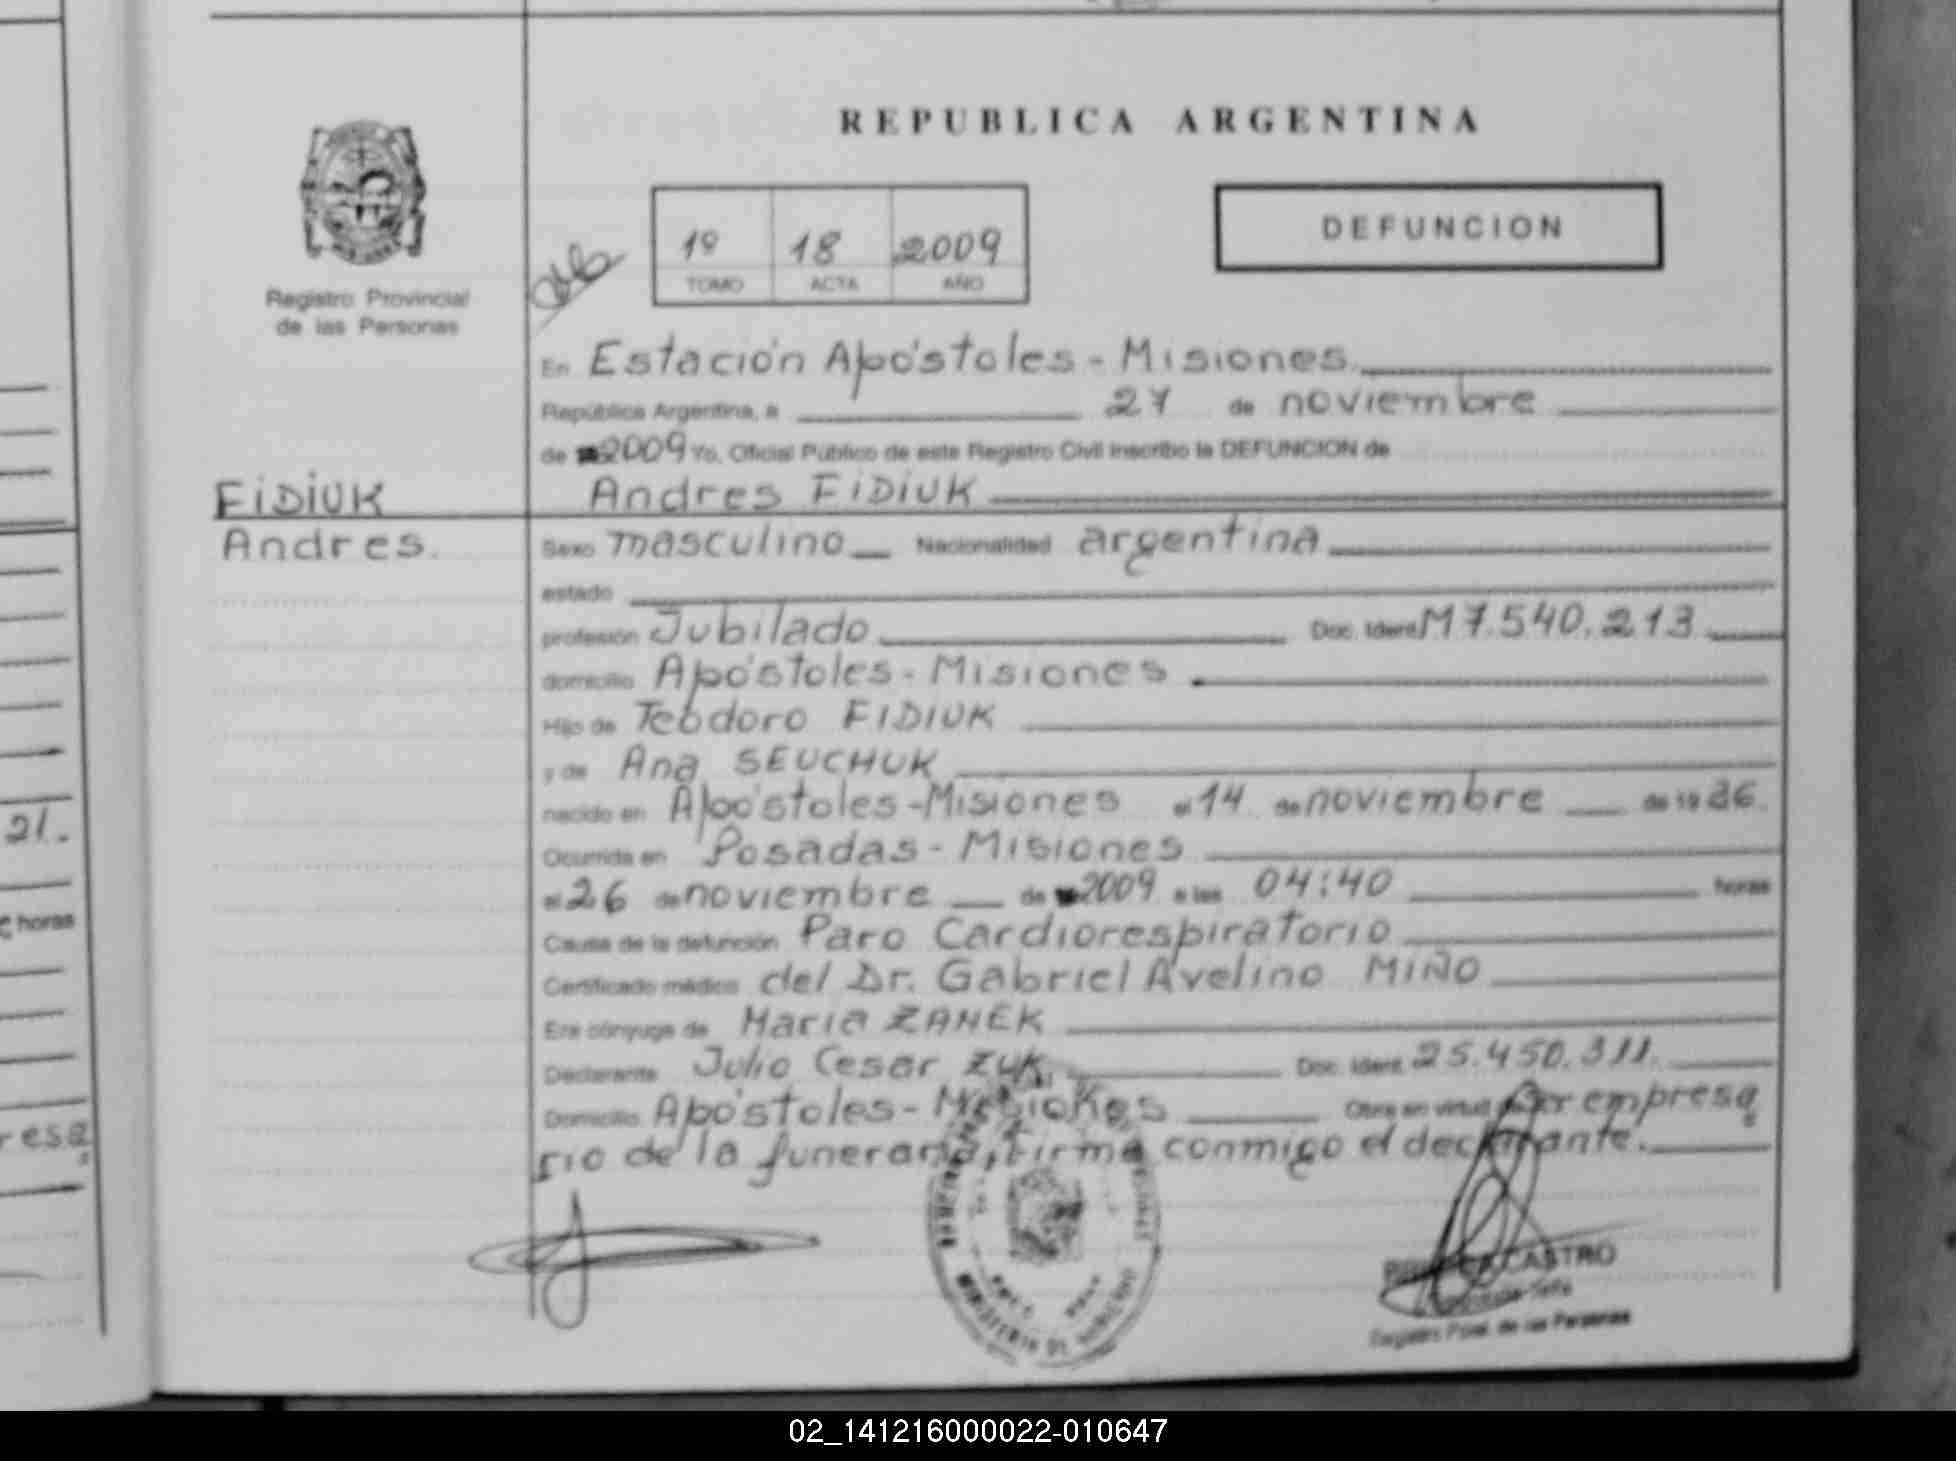 REPUBLICA ARGENTINA
DEFUNCION
1º 18 2009
TOMO ACTA AÑO
Registro Provincial
de las Personas
En Estación Apóstoles - Misiones
República Argentina, a 27 de noviembre
de 2009 Yo, Oficial Público de este Registro Civil inscribo la DEFUNCION de
FiDiUK
Andres FiDiUK
Andres.
Sexo masculino Nacionalidad argentina
estado
profesión Jubilado Doc. Ident. M7.540.213
domicilio Apóstoles - Misiones
Hijo de Teodoro FIDIUK
y de Ana SEUCHUK
nacido en Apóstoles - Misiones el 14 de noviembre de 19 36.
Ocurrida en Posadas - Misiones
el 26 de noviembre de 2009 a las 04:40 horas
Causa de la defunción Paro Cardiorespiratorio
Certificado médico del Dr. Gabriel Avelino MIÑO
Era cónyuge de Maria ZANEK
Declarante Julio Cesar ZUK Doc. Ident. 25.450.311.
Domicilio Apóstoles - Misiones Obra en virtud Ser empresa
rio de la funeraria, firma conmigo el declarante.
21.
horas
resa
MINISTERIO DE GOBIERNO
CASTRO
Registro Pcial. de las Personas
02_141216000022-010647